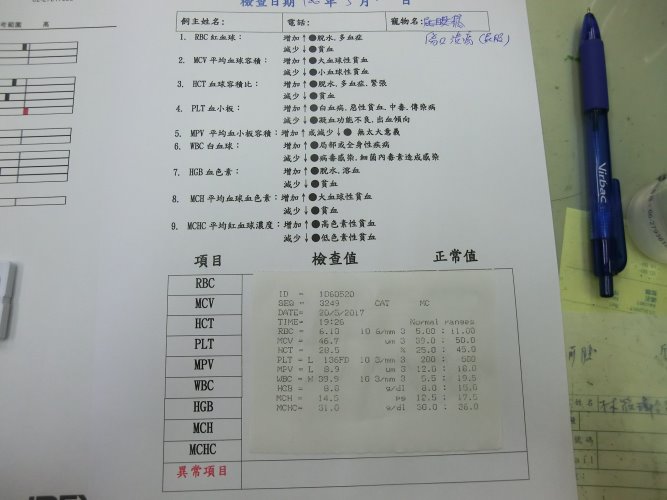 考範圍 高
檢查日期 年 5月 日
飼主姓名: 電話: 寵物名:
1. RBC 紅血球: 增加↑●脫水,多血症
減少↓●貧血
2. MCV 平均血球容積: 增加↑●大血球性貧血
減少↓●小血球性貧血
3. HCT 血球容積比: 增加↑●脫水,多血症,緊張
減少↓●貧血
4. PLT 血小板: 增加↑●白血病,惡性貧血,中毒,傳染病
減少↓●凝血功能不良,出血傾向
5. MPV 平均血小板容積: 增加↑或減少↓● 無太大意義
6. WBC 白血球: 增加↑●局部或全身性疾病
減少↓●病毒感染,細菌內毒素造成感染
7. HGB 血色素: 增加↑●脫水,溶血
減少↓●貧血
8. MCH 平均血球血色素: 增加↑●大血球性貧血
減少↓●貧血
9. MCHC 平均紅血球濃度: 增加↑●高色素性貧血
減少↓●低色素性貧血
項目 檢查值 正常值
RBC
MCV
HCT
PLT
MPV
WBC
HGB
MCH
MCHC
異常項目
ID = 1060520
SEQ = 3249 CAT MC
DATE= 20/5/2017
TIME= 19:26 Normal ranges
RBC = 6.10 10 6/mm 3 5.00 : 11.00
MCV = 46.7 um 3 39.0 : 50.0
HCT = 28.5 % 25.0 : 45.0
PLT = L 136FD 10 3/mm 3 200 : 500
MPV = L 8.9 um 3 12.0 : 18.0
WBC = H 39.9 10 3/mm 3 5.5 : 19.5
HGB = 8.8 g/dl 8.0 : 15.0
MCH = 14.5 pg 12.5 : 17.5
MCHC= 31.0 g/dl 30.0 : 36.0
Virbac